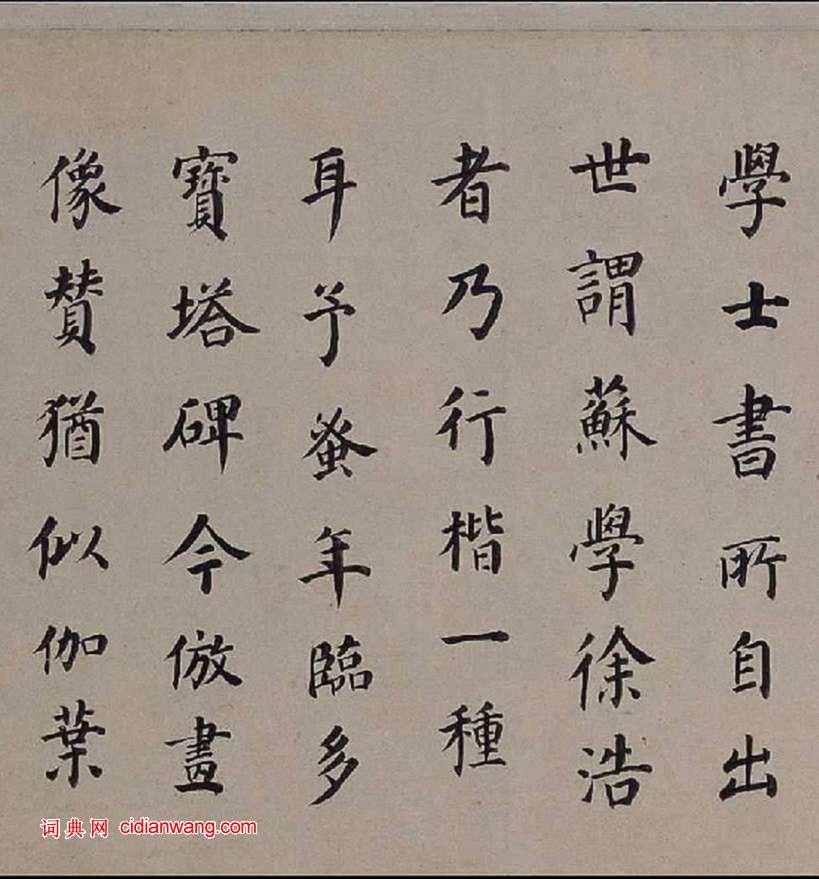 學士書所自出
世謂蘇學徐浩
者乃行楷一種
耳予蚤年臨多
寶塔碑今倣畫
像贊猶似伽葉
词典网 cidianwang.com